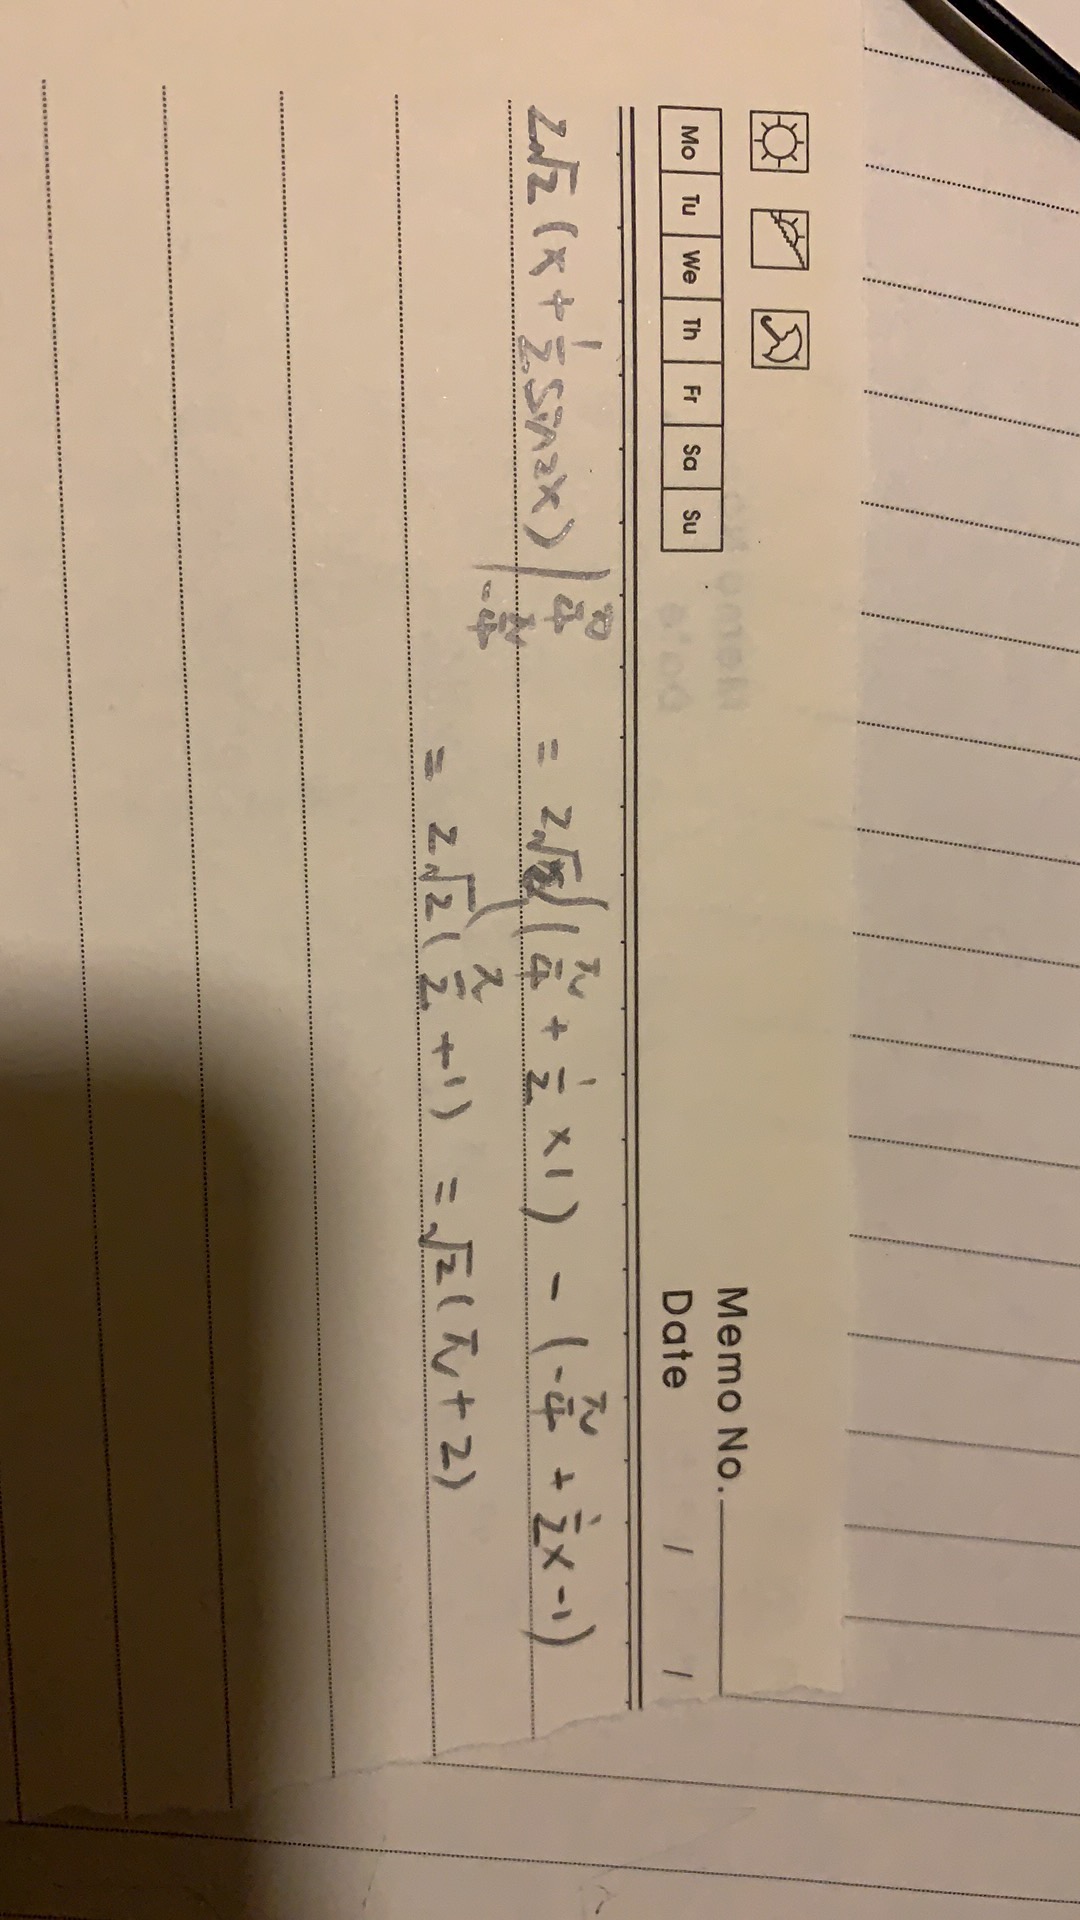 Memo No.
Mo Tu We Th Fr Sa Su
Date / /
2√2 (x + 1/2 sin2x) |_{-π/4}^{π/4} = 2√2 (π/4 + 1/2 ×1) - (-π/4 + 1/2 × -1)
= 2√2 (π/2 + 1) = √2 (π + 2)